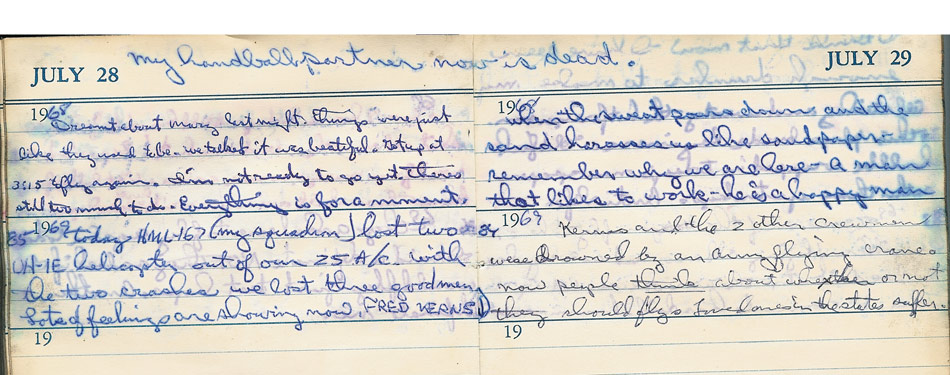 my handball partner now is dead.
JULY 28
1968
Dreamt about mary last night. Things were just
like they used to be - we talked it was beatiful. Got up at
3:15 & fly again. I'm not ready to go yet there's
still too much to do - Everything is for a moment.
1969
35 today HML-167 (my squadron) lost two
UH-1E helicopter out of our 25 A/c. with
the two crashes we lost three good men,
Lots of feelings are showing now. FRED KERNS
19
JULY 29
1968
When the sweat pours down and the
sand harasses us like sandpaper -
remember why we are here - A man
that likes to work - he is a happy man
1969
34 Kerns and the 2 other crewman
were drowned by an army flying crane.
now people think about whether or not
they should fly. Loved ones in the states suffer.
19